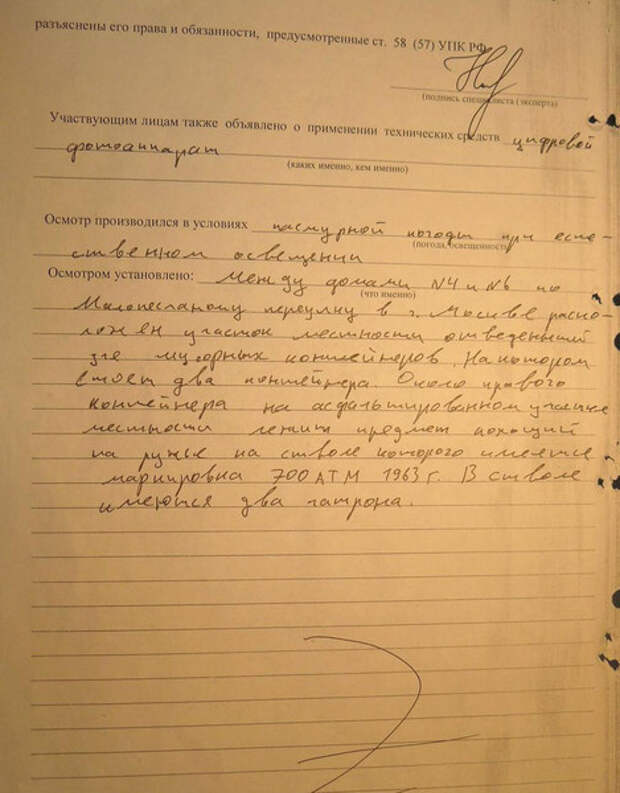 разъяснены его права и обязанности, предусмотренные ст. 58 (57) УПК РФ
(подпись специалиста (эксперта)
Участвующим лицам также объявлено о применении технических средств цифровой
фотоаппарат
(каких именно, кем именно)
Осмотр производился в условиях пасмурной погоды при есте-
(погода, освещенность)
ственном освещении
Осмотром установлено: Между домами №4 и №6 по
(что именно)
Малопесчаному переулку в г. Москве распо-
ложен участок местности отведенный
для мусорных контейнеров. На котором
стоят два контейнера. Около правого
контейнера на асфальтированном участке
местности лежит предмет похощий
на ружье на стволе которого имеется
маркировка 700 АТМ 1963 г. В стволе
имеются два патрона.